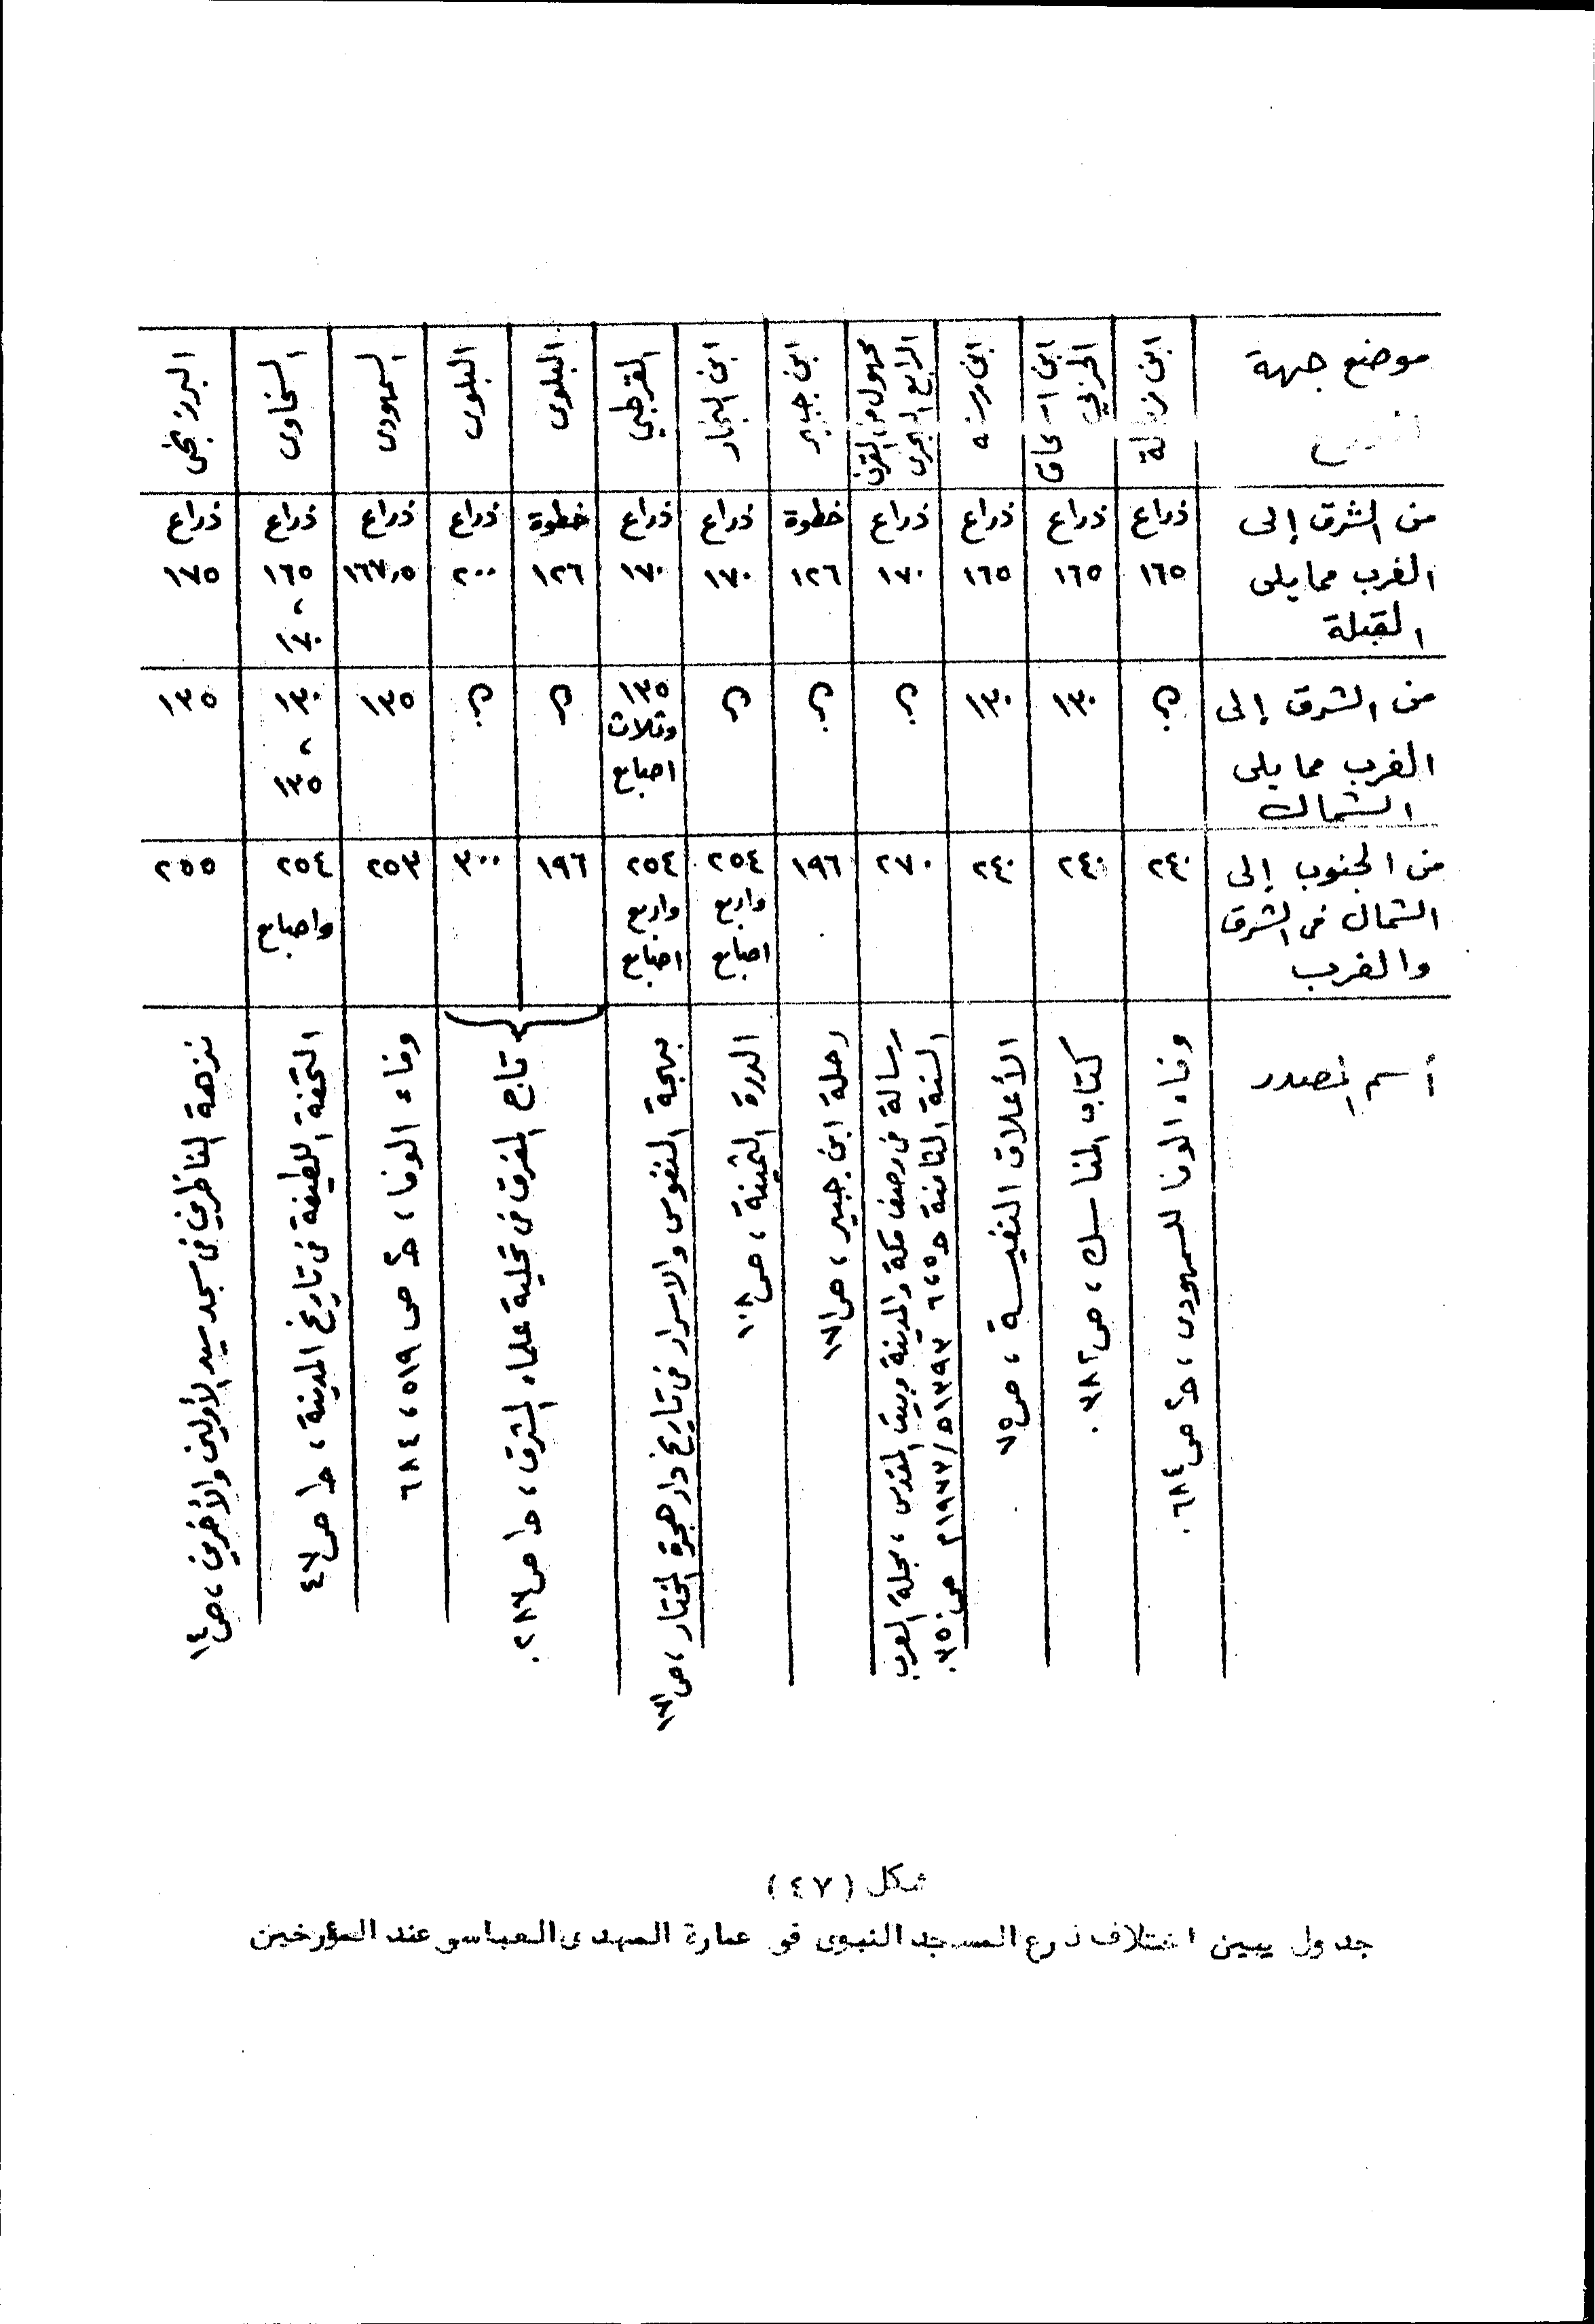 موضع جهة
ابن زبالة
ابن اسحاق الحربي
ابن رسته
مجهول من القرن الرابع الهجرى
ابن جبير
ابن النجار
القرطبي
البلوى
البلوى
السمهودى
السخاوى
البرزنجى
من الشرق إلى الغرب مما يلى القبلة
ذراع ١٦٥
ذراع ١٦٥
ذراع ١٦٥
ذراع ١٧٠
خطوة ١٢٦
ذراع ١٧٠
ذراع ١٧٠
خطوة ١٢٦
ذراع ٢٠٠
ذراع ١٦٧,٥
ذراع ١٦٥ ، ١٧٠
ذراع ١٧٥
من الشرق إلى الغرب مما يلى الشمال
؟
١٣٠
١٣٠
؟
؟
؟
١٣٥ وثلاث اصابع
؟
؟
١٣٥
١٣٠ ، ١٣٥
١٣٥
من الجنوب إلى الشمال فى الشرق والغرب
٢٤٠
٢٤٠
٢٤٠
٢٧٠
١٩٦
٢٥٤ واربع اصابع
٢٥٤ واربع اصابع
١٩٦
٣٠٠
٢٥٣
٢٥٤ واصابع
٢٥٥
أسم المصدر
وفاء الوفا للسمهودى ، ج٢ ص ٦٨٤.
كتاب المناسك ، ص ٣٨٢.
الأعلاق النفيسة ، ص ٧٥
رسالة فى وصف مكة والمدينة وبيت المقدس ، مجلة العرب
السنة الثامنة ج ٥، ٦ ١٣٩٣ه/١٩٧٣م ص ٣٥٠.
رحلة ابن جبير ، ص ١٧١
الدرة الثمينة ، ص ١٠٨
بهجة النفوس والاسرار فى تاريخ دار هجرة المختار ، ص ١٧١
تاج المفرق فى تحلية علماء المشرق ، ج١ ص ٢٨٧.
وفاء الوفا ، ج٢ ص ٥١٩ ، ٦٨٤
التحفة اللطيفة فى تاريخ المدينة ، ج١ ص ٤٧
نزهة الناظرين فى مسجد سيد الأولين والأخرين ، ص ١٤
شكل (٤٧)
جدول يبين اختلاف ذرع المسجد النبوى فى عمارة المهدى العباسى عند المؤرخين